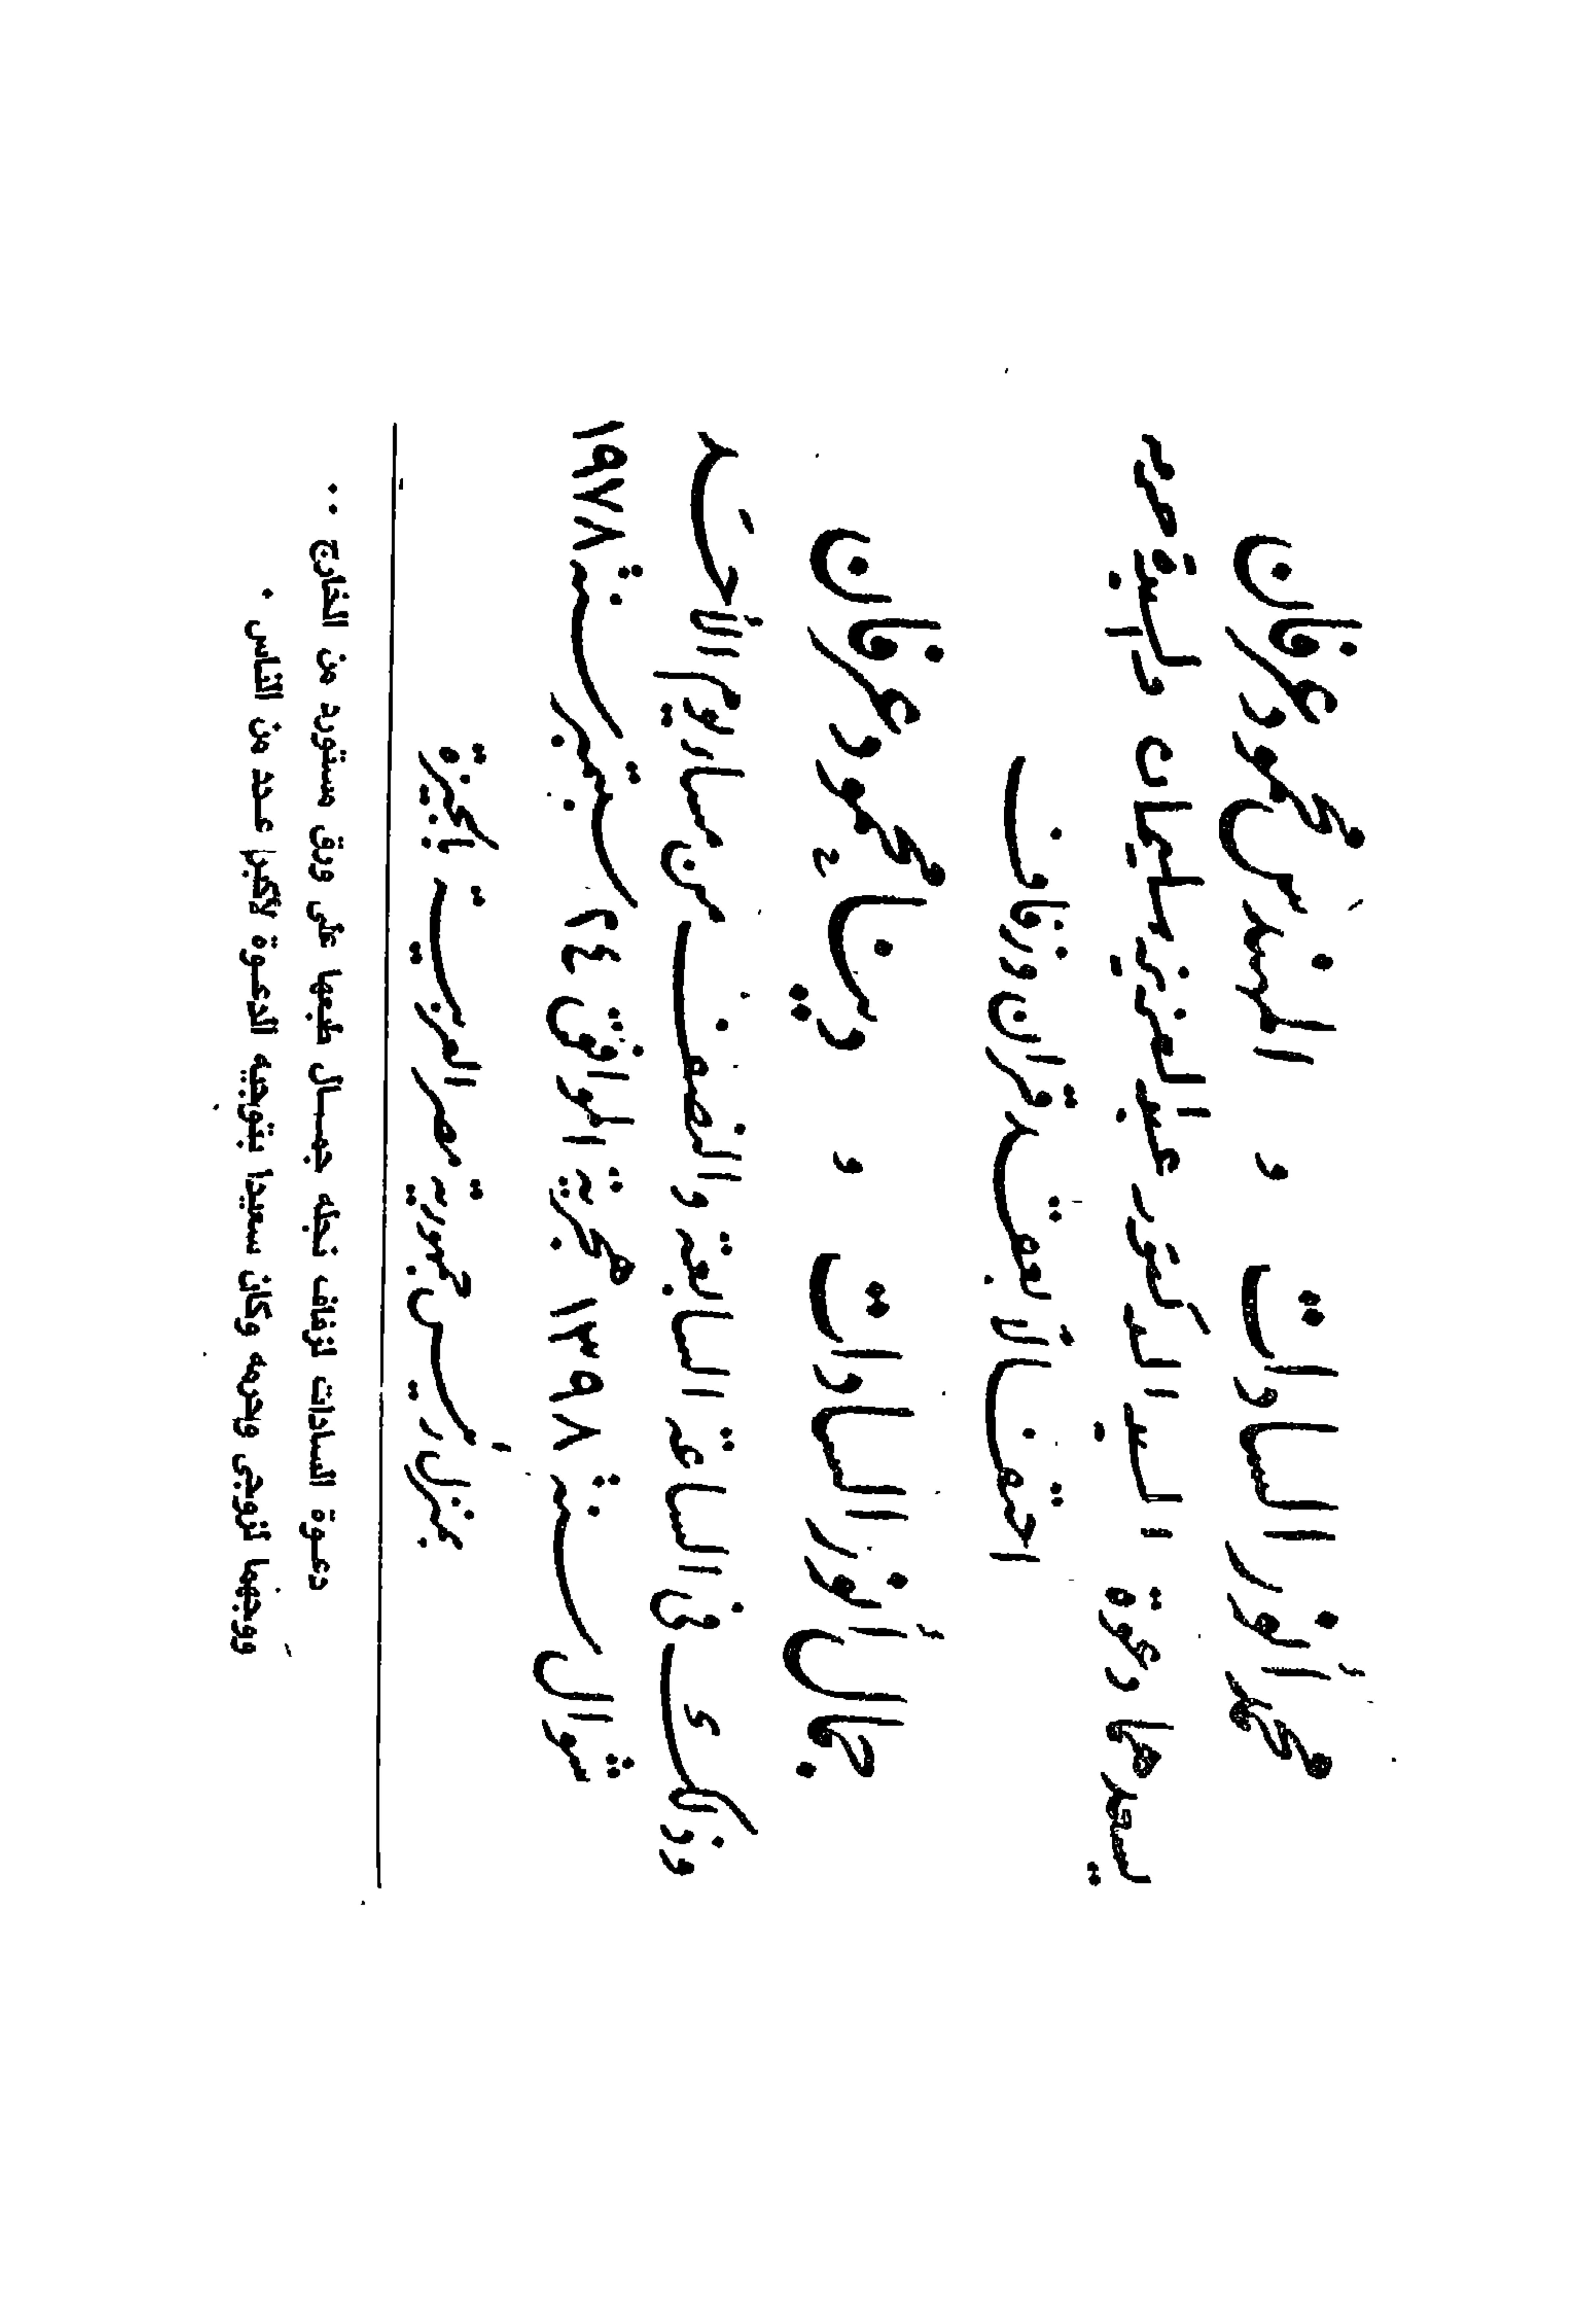 محمد أنور السادات و المهندس محمود عفان
يسعدهما دعوة السيد الدكتور عبد العزيز سليمان والسيدة حرمه
احتفالاً بعقد قران وزفاف
جمال أنور السادات و دينا محمود عفان
وذلك فى الساعة السابعة والنصف من مساء يوم الأحد
شوال سنة ١٣٩٨ هجرية الموافق ٢٤ سبتمبر سنة ١٩٧٨
بمنزل رئيس جمهورية مصر العربية بالجيزة
دعوة السادات لزفاف نجله جمال طبعها على ورق مستورد من الخارج ..
ووجهها لزوجى وحرمه وكان سعيدا بتوجيه الدعوة لأكبر عدد من الناس .